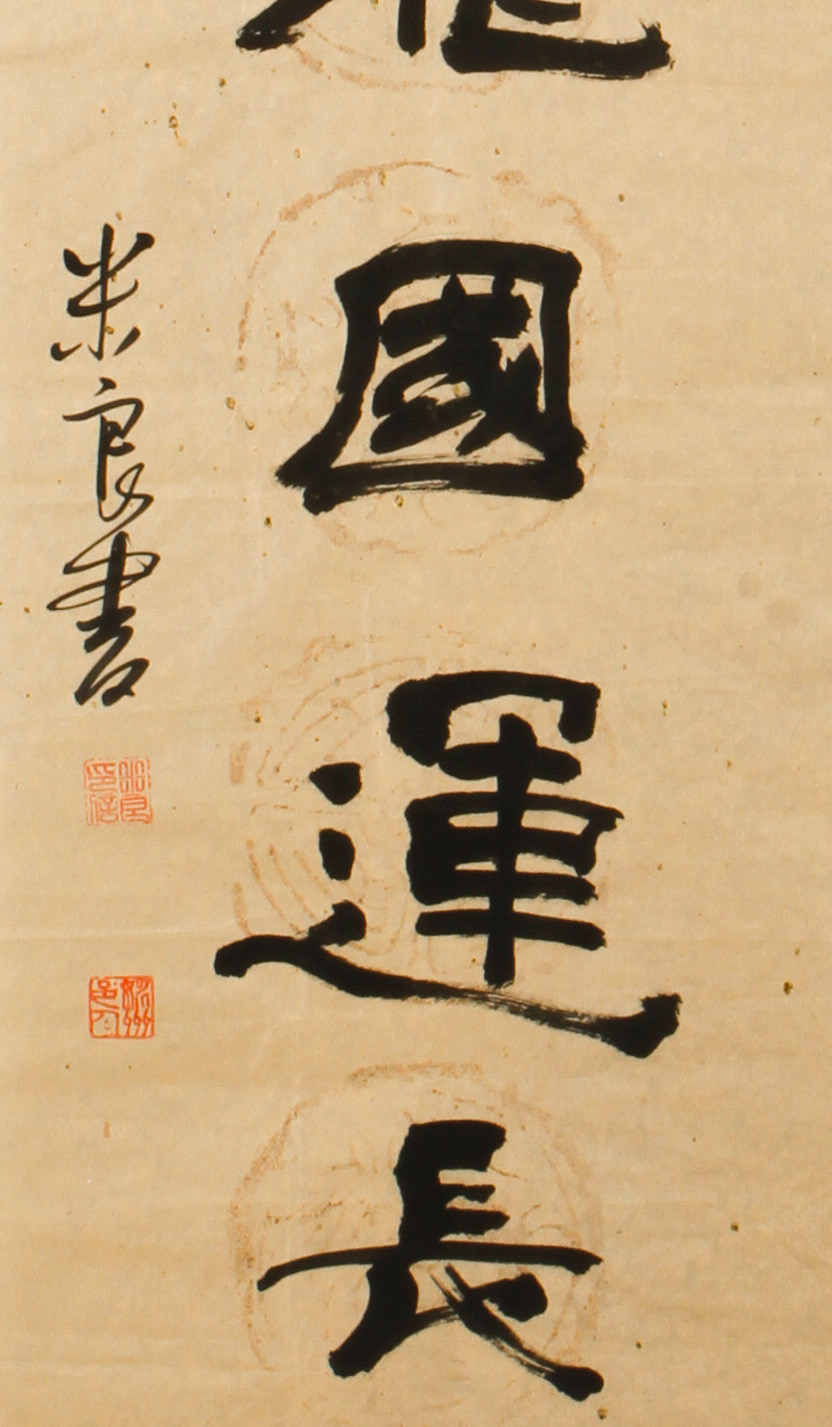 國運長
米良書